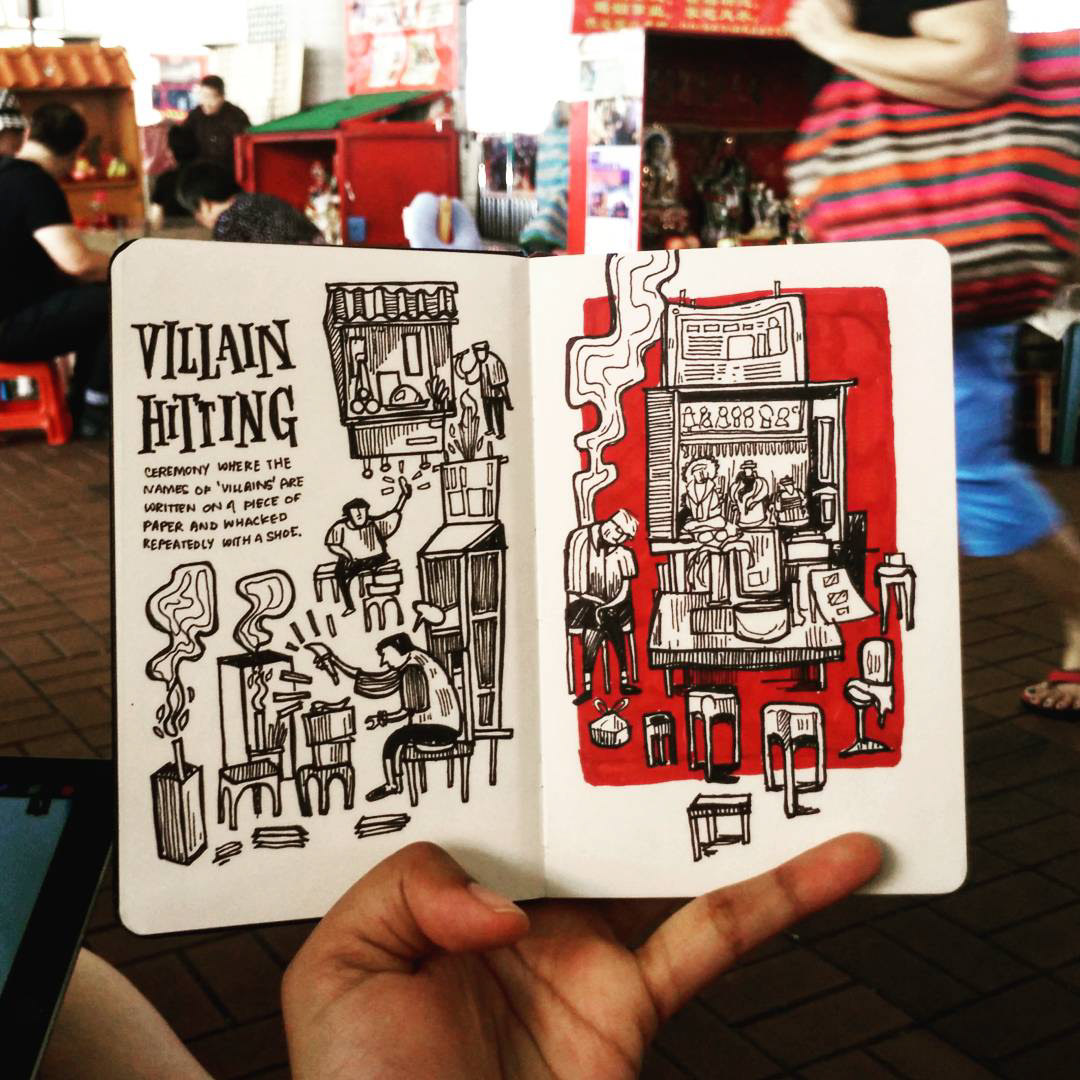 VILLAIN
HITTING
CEREMONY WHERE THE
NAMES OF 'VILLAINS' ARE
WRITTEN ON A PIECE OF
PAPER AND WHACKED
REPEATEDLY WITH A SHOE.